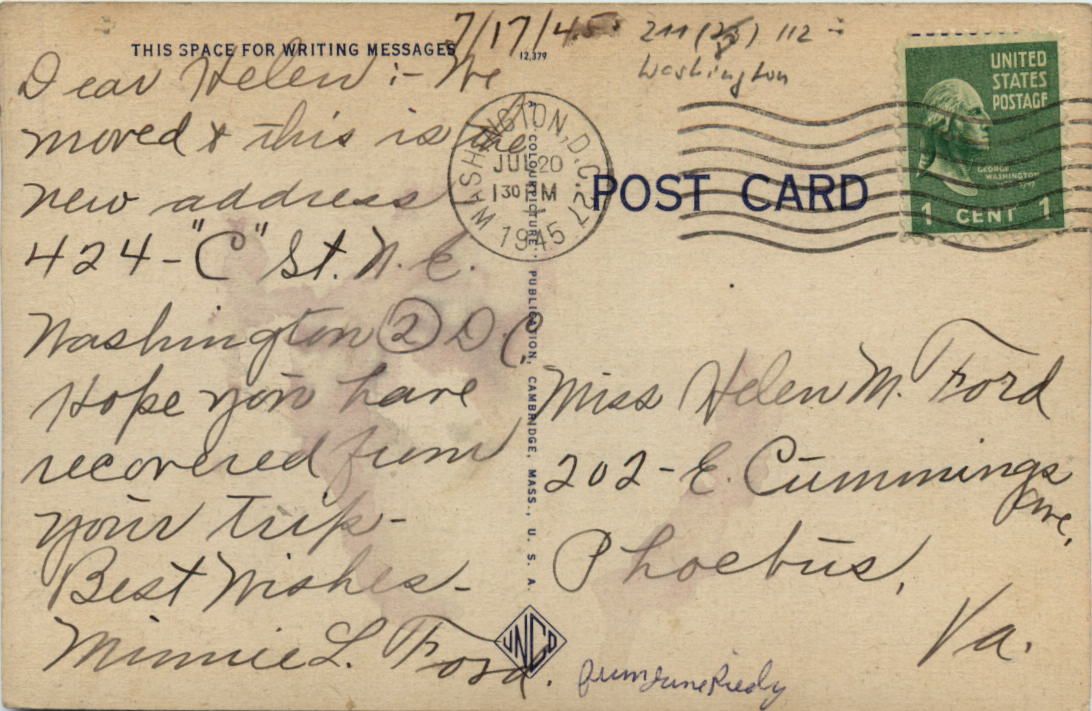 THIS SPACE FOR WRITING MESSAGES
7/17/45
12,379
Dear Helen :- We
moved & this is the
new address
424-"C" St. N. E.
Washington ② D.C.
Hope you have
recovered from
your trip-
Best Wishes-
Minnie L. Ford.
A "COLOURPICTURE" PUBLICATION, CAMBRIDGE, MASS., U. S. A.
112
Washington
WASHINGTON, D.C. 27
JUL 20
130 PM
1945
UNITED
STATES
POSTAGE
GEORGE
WASHINGTON
1 CENT 1
POST CARD
Miss Helen M. Ford
202-E. Cummings
Ave.
Phoebus,
Va.